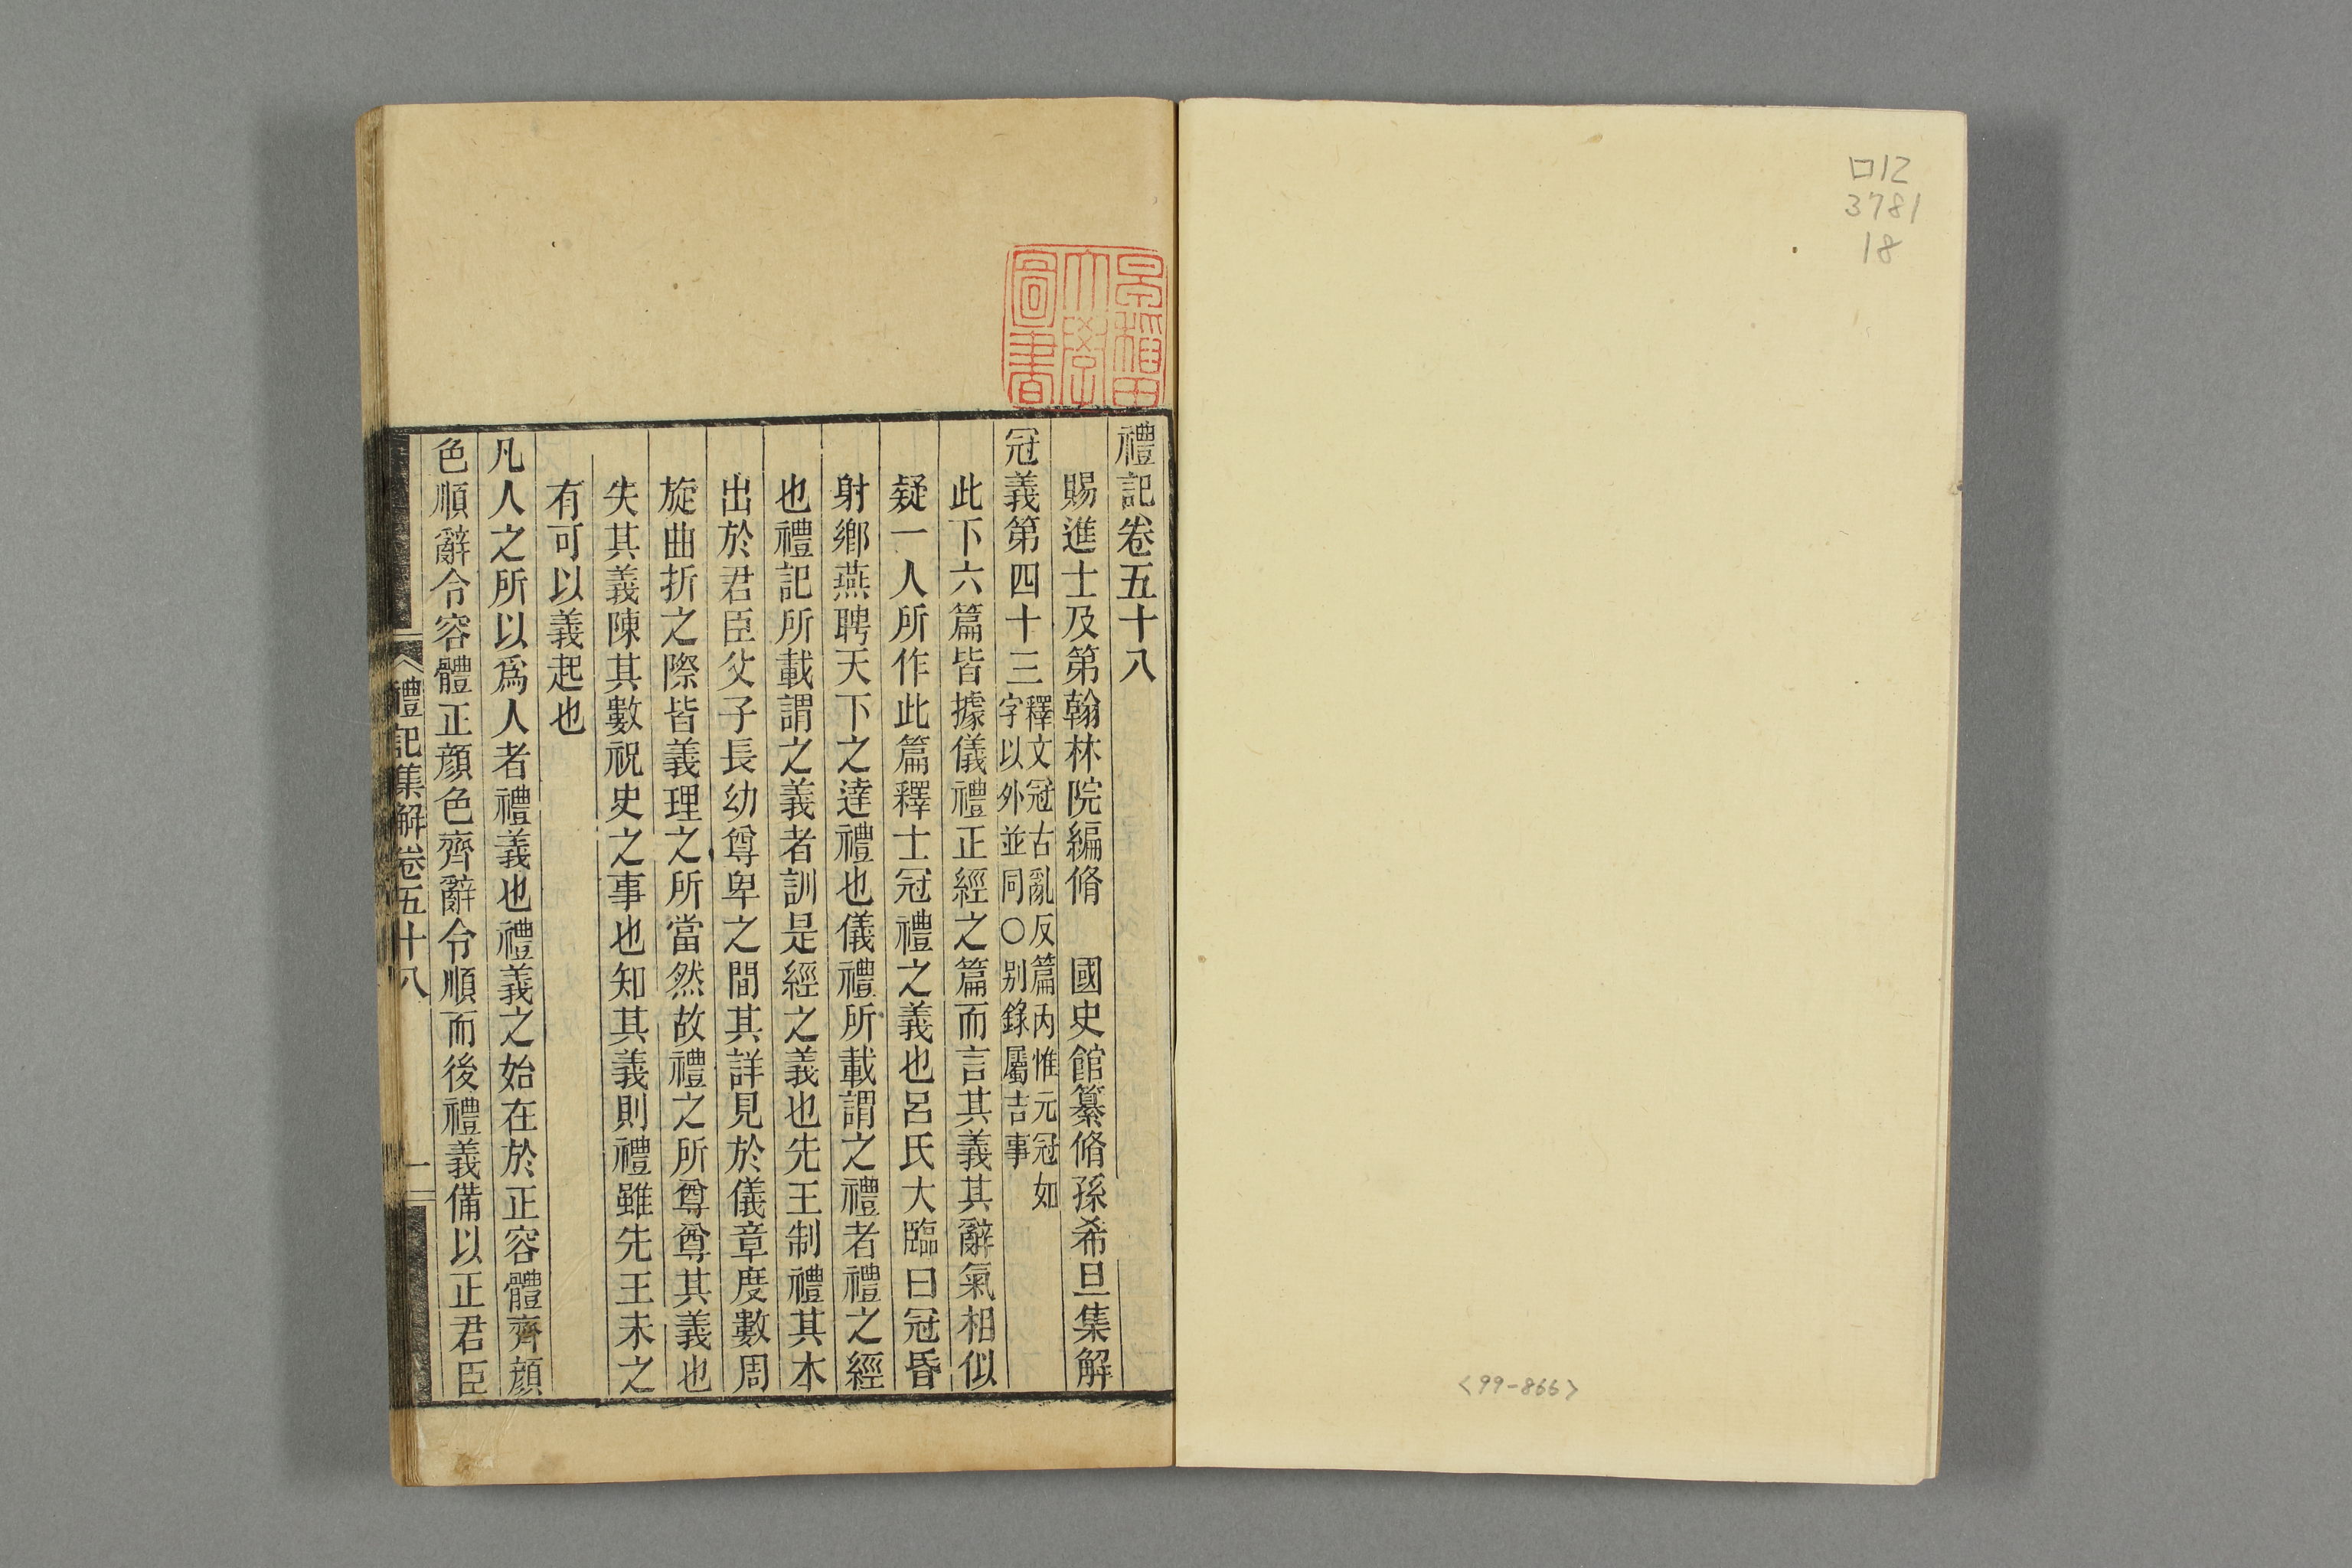 口12
3781
18
<99-866>
早稲田
大學
圖書
禮記卷五十八
賜進士及第翰林院編脩　國史館纂脩孫希旦集解
冠義第四十三釋文冠古亂反篇内惟元冠如
字以外並同○别錄屬吉事
此下六篇皆據儀禮正經之篇而言其義其辭氣相似
疑一人所作此篇釋士冠禮之義也呂氏大臨曰冠昏
射鄉燕聘天下之達禮也儀禮所載謂之禮者禮之經
也禮記所載謂之義者訓是經之義也先王制禮其本
出於君臣父子長幼尊卑之間其詳見於儀章度數周
旋曲折之際皆義理之所當然故禮之所尊尊其義也
失其義陳其數祝史之事也知其義則禮雖先王未之
有可以義起也
凡人之所以爲人者禮義也禮義之始在於正容體齊顏
色順辭令容體正顏色齊辭令順而後禮義備以正君臣
禮記集解卷五十八
一